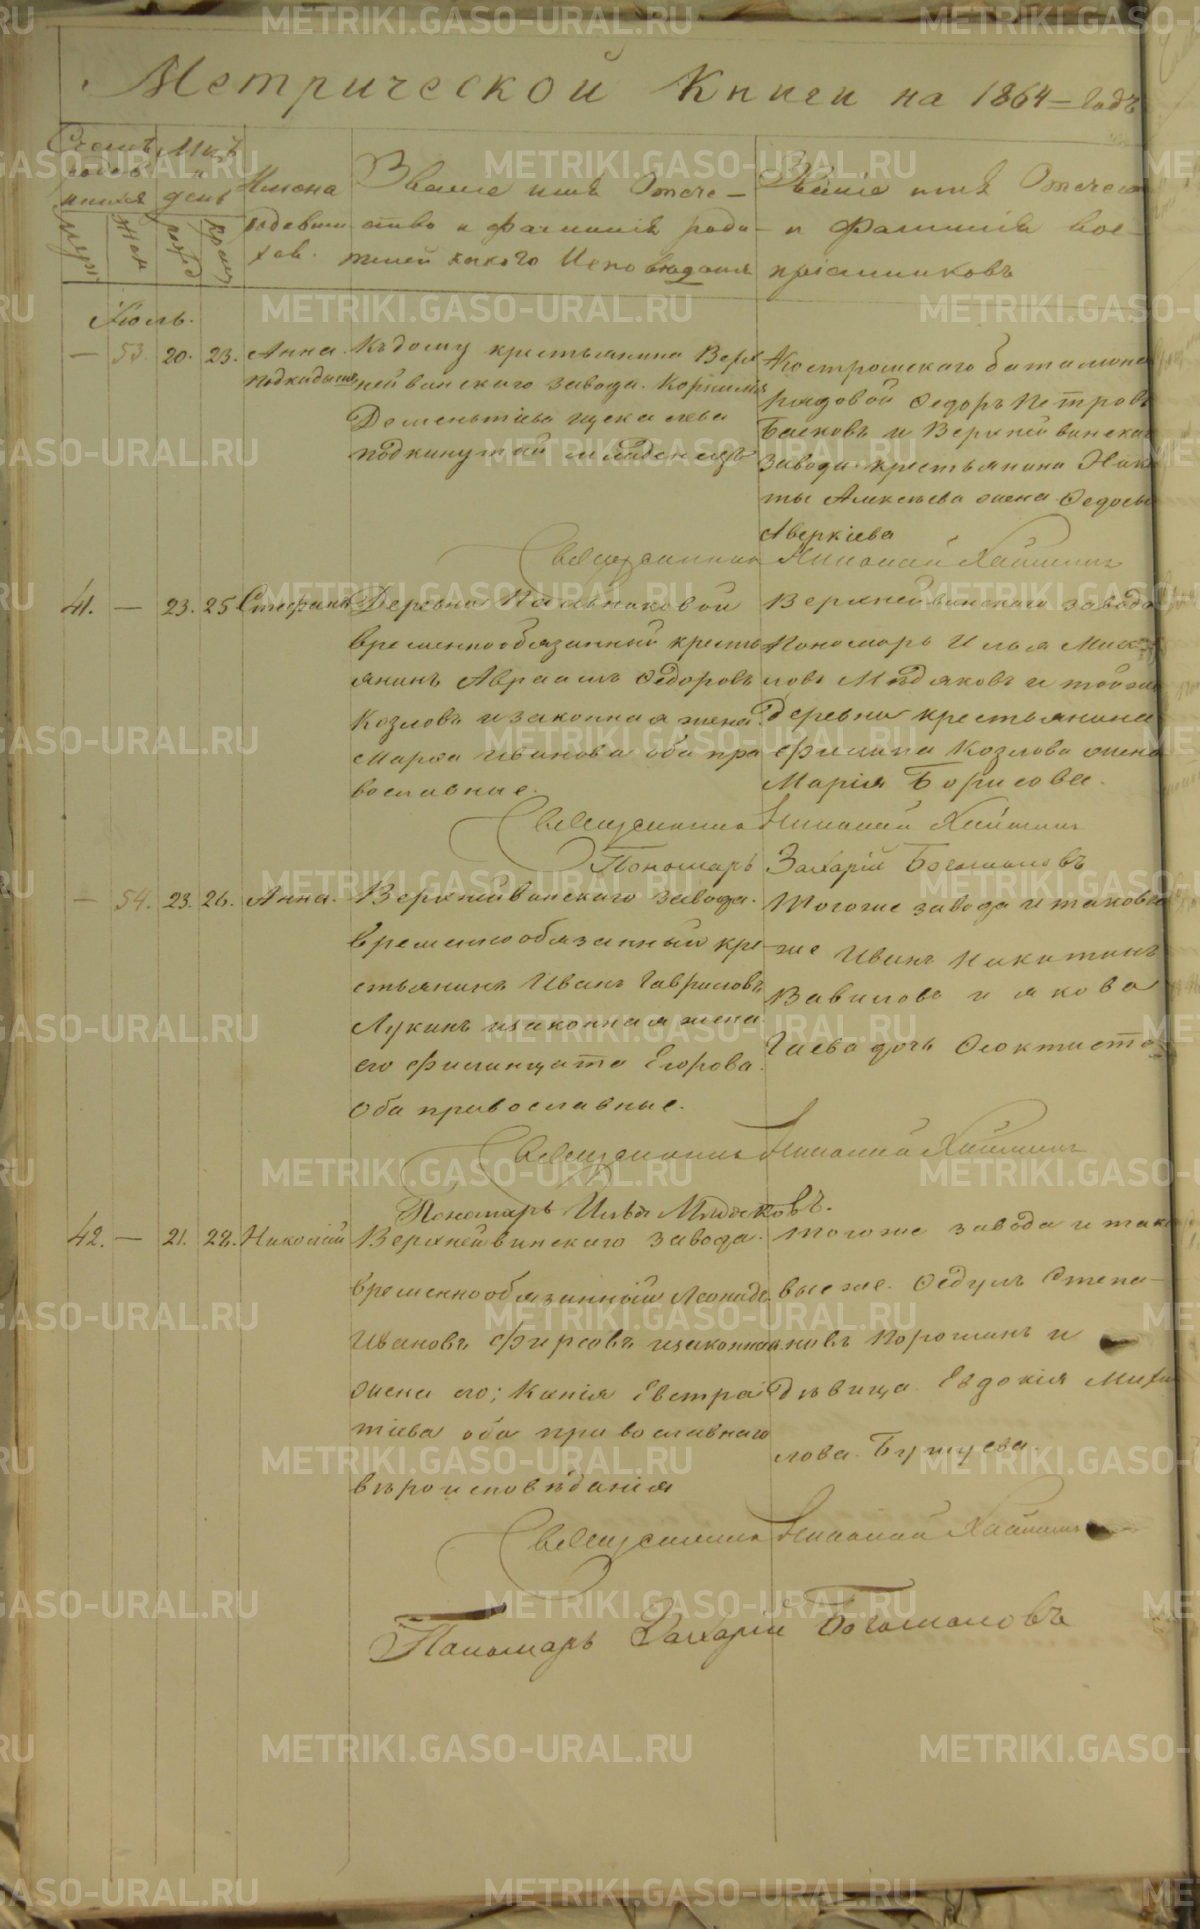 Метрической Книги на 1864 – годъ
Счетъ родившихся
муж
жен
Мцъ и день
рожд
крещ
Имена родившихся.
Званіе имя Отече-
ство и фамилія роди-
телей какого Исповѣданія
Званіе имя Отечест
и фамилія вос-
пріемниковъ
Іюль.
— 53. 20. 23. Анна
подкидыш
Къ дому крестьянина Верх
нейвинскаго завода. Корнилія
Дементьева
подкинутый младенецъ
Костромскаго баталіона
рядовой Федоръ Петровъ
Басковъ и Верхнейвинскаг
завода крестьянина Ники
ты Алексѣева жена Федосья
Аверкіева
Священникъ Николай
41. — 23. 25 Стефанъ
Деревни Пальниковой
временнообязанный кресть
янинъ Авраамъ Федоровъ
Козловъ и законная жена
Марѳа Иванова оба пра
вославные.
Верхнейвинскаго завода
Пономарь Илья Миха
ловъ Мѣдяковъ и тойже
деревни крестьянина
Филипа Козлова жена
Марія Борисова.
Священникъ Николай
Пономарь Захарій Богомоловъ
— 54. 23. 26. Анна.
Верхнейвинскаго завода.
временнообязанный кре-
стьянинъ Иванъ Гавриловъ
Лукинъ и законная жена
его Филицата Егорова.
Оба православные.
Тогоже завода и таковые
же Иванъ Никитинъ
Вавиловъ и Якова
Гаева дочь Феоктиста
Священникъ Николай
Пономарь Илья Мѣдяковъ.
42. — 21. 28. Николай
Верхнейвинскаго завода.
временнообязанный Леонидъ
Ивановъ Фирсовъ и законная
жена его; Капія Евстра
тіева оба православнаго
вѣроисповѣданія
тогоже завода и тако
выеже. Федулъ Степа-
новъ Порошинъ и
дѣвица Евдокія Михай
лова
Священникъ Николай
Пономарь Захарій Богомоловъ
METRIKI.GASO-URAL.RU